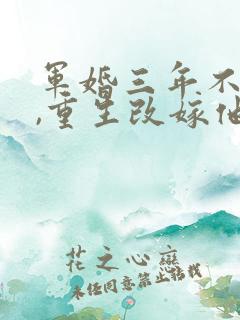 军婚三年不
,重生改嫁他
花之心恋
未经同意禁止转载